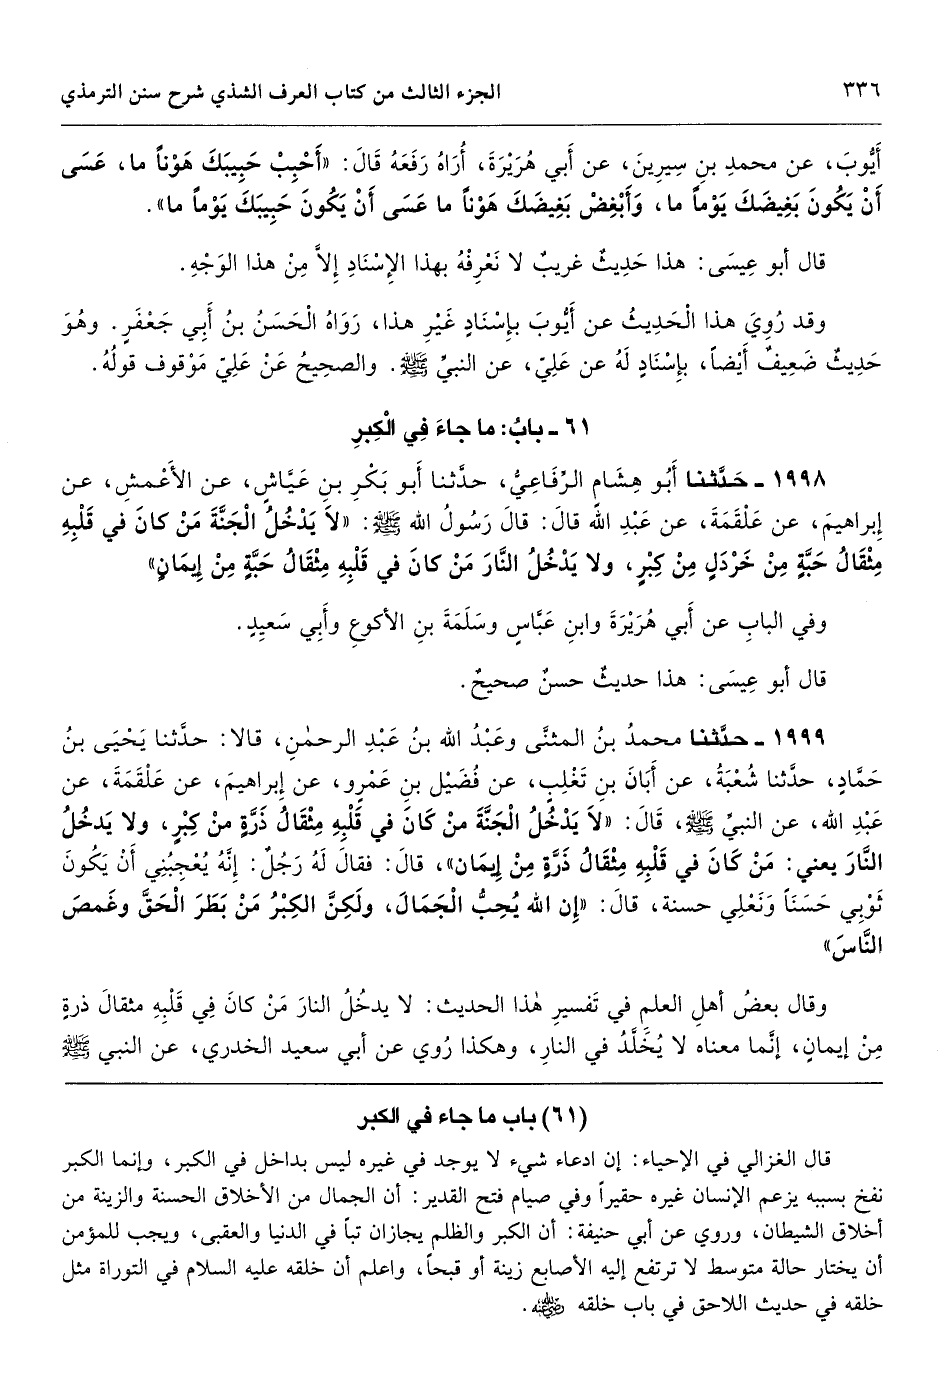 ٣٣٦ الجزء الثالث من كتاب العرف الشذي شرح سنن الترمذي
أَيُّوبَ، عن محمدِ بنِ سِيرِينَ، عن أبي هُرَيْرَةَ، أُرَاهُ رَفَعَهُ قَالَ: «أَحْبِبْ حَبِيبَكَ هَوْناً ما، عَسَى
أَنْ يَكُونَ بَغِيضَكَ يَوْماً ما، وَأَبْغِضْ بَغِيضَكَ هَوْناً ما عَسَى أَنْ يَكُونَ حَبِيبَكَ يَوْماً ما».
قال أبو عِيسَى: هذا حَدِيثٌ غريبٌ لا نَعْرِفُهُ بهذا الإِسْنَادِ إِلاَّ مِنْ هذا الوَجْهِ.
وقد رُوِيَ هذا الْحَدِيثُ عن أَيُّوبَ بإِسْنَادٍ غَيْرِ هذا، رَوَاهُ الْحَسَنُ بنُ أَبِي جَعْفَرٍ. وهُوَ
حَدِيثٌ ضَعِيفٌ أَيْضاً، بإِسْنَادٍ لَهُ عن عَلِيّ، عن النبيِّ ﷺ. والصحيحُ عَنْ عَلِيّ مَوْقوف قولُهُ.
٦١ ـ بابُ: ما جاءَ فِي الْكِبرِ
١٩٩٨ ـ حَدَّثنا أَبُو هِشَامٍ الرِّفَاعِيُّ، حدَّثنا أبو بَكْرِ بنِ عَيَّاشٍ، عن الأَعْمشِ، عن
إبراهيمَ، عن عَلْقَمَةَ، عن عَبْدِ اللهِ قالَ: قالَ رَسُولُ الله ﷺ: «لاَ يَدْخُلُ الْجَنَّةَ مَنْ كانَ في قَلْبِهِ
مِثْقَالُ حَبَّةٍ مِنْ خَرْدَلٍ مِنْ كِبْرٍ، ولا يَدْخُلُ النَّارَ مَنْ كانَ في قَلْبِهِ مِثْقَالُ حَبَّةٍ مِنْ إِيمَانٍ»
وفي البابِ عن أَبي هُرَيْرَةَ وابنِ عَبَّاسٍ وسَلَمَةَ بنِ الأكوعِ وأَبِي سَعِيدٍ.
قال أبو عِيسَى: هذا حديثٌ حسنٌ صحيحٌ.
١٩٩٩ ـ حدَّثنا محمدُ بنُ المثنَّى وعَبْدُ الله بنُ عَبْدِ الرحمٰنِ، قالا: حدَّثنا يَحْيَى بنُ
حَمَّادٍ، حدَّثنا شُعْبَةُ، عن أَبَانَ بنِ تَغْلِبٍ، عن فُضَيْلِ بنِ عَمْرٍو، عن إبراهيمَ، عن عَلْقَمَةَ، عن
عَبْدِ الله، عن النبيِّ ﷺ، قَالَ: «لاَ يَدْخُلُ الْجَنَّةَ منْ كَانَ في قَلْبِهِ مِثْقَالُ ذَرَّةٍ منْ كِبْرٍ، ولا يَدخُلُ
النَّارَ يعني: مَنْ كَانَ في قَلْبِهِ مِثْقَالُ ذَرَّةٍ مِنْ إِيمَان»، قالَ: فقالَ لَهُ رَجُلٌ: إِنَّهُ يُعْجِبُنِي أَنْ يَكُونَ
ثَوْبِي حَسَنَاً وَنَعْلِي حسنة، قال: «إن الله يُحِبُّ الْجَمَالَ، ولَكِنَّ الكِبْرُ مَنْ بَطَرَ الْحَقَّ وغَمصَ
النَّاسَ»
وقال بعضُ أهلِ العلمِ في تَفسيرِ هٰذا الحديث: لا يدخُلُ النارَ مَنْ كانَ فِي قَلْبِهِ مثقالَ ذرةٍ
مِنْ إيمانٍ، إنَّما معناه لا يُخَلَّدُ في النارِ، وهكذا رُوي عن أبي سعيد الخدري، عن النبي ﷺ
(٦١) باب ما جاء في الكبر
قال الغزالي في الإحياء: إن ادعاء شيء لا يوجد في غيره ليس بداخل في الكبر، وإنما الكبر
نفخ بسببه يزعم الإنسان غيره حقيراً وفي صيام فتح القدير: أن الجمال من الأخلاق الحسنة والزينة من
أخلاق الشيطان، وروي عن أبي حنيفة: أن الكبر والظلم يجازان تباً في الدنيا والعقبى، ويجب للمؤمن
أن يختار حالة متوسط لا ترتفع إليه الأصابع زينة أو قبحاً، واعلم أن خلقه عليه السلام في التوراة مثل
خلقه في حديث اللاحق في باب خلقه رضي الله عنه.